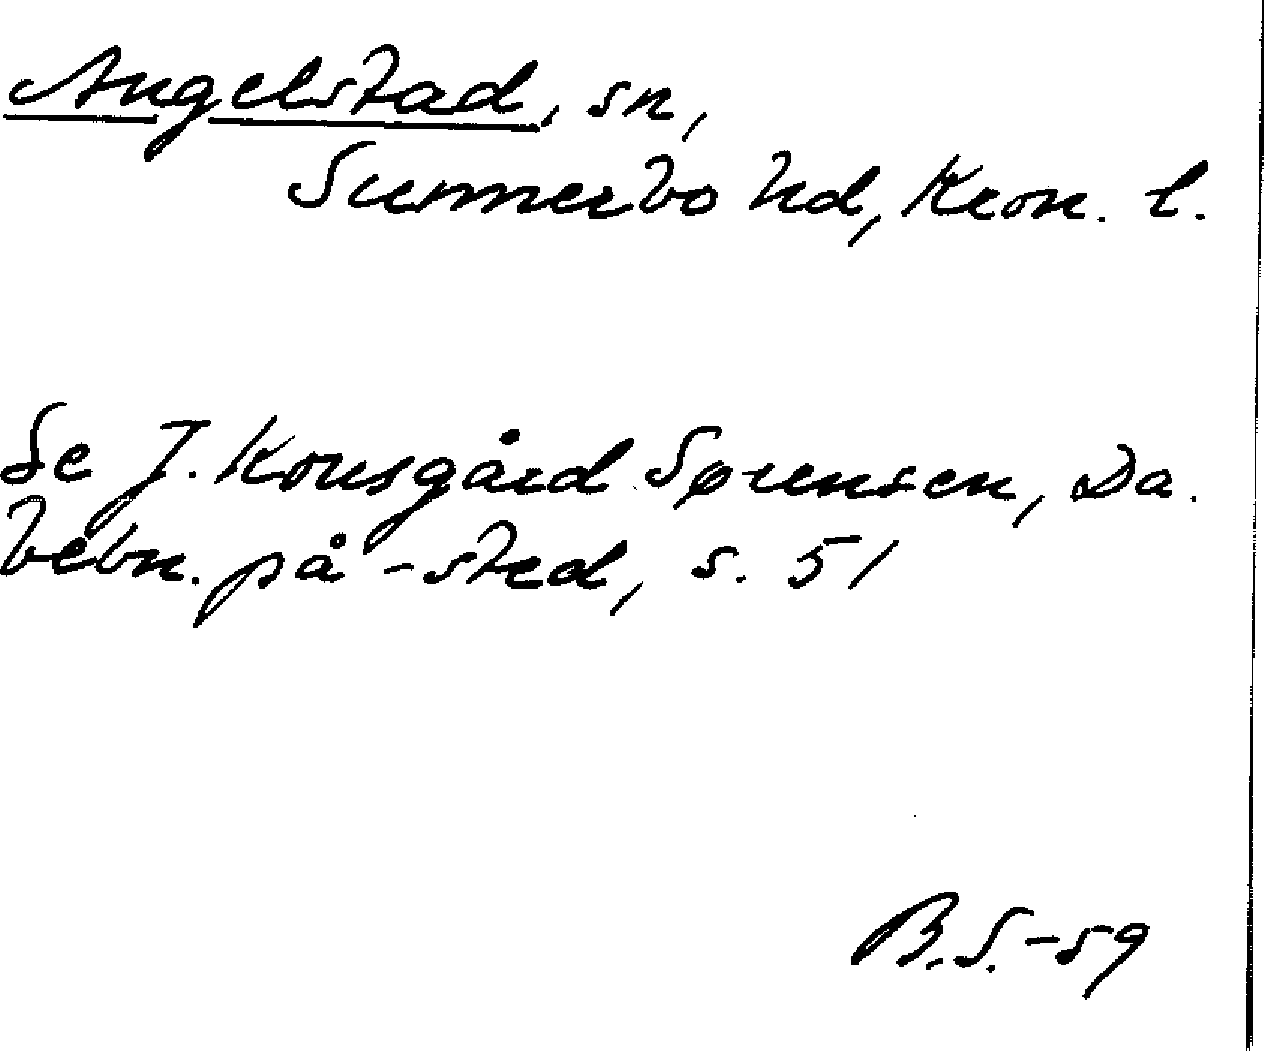 Angelstad, sn,
Sunnerbo hd, Kron. l.
Se J. Kousgård Sørensen, Da.
bebn. på -sted, s. 51
B.S.-59